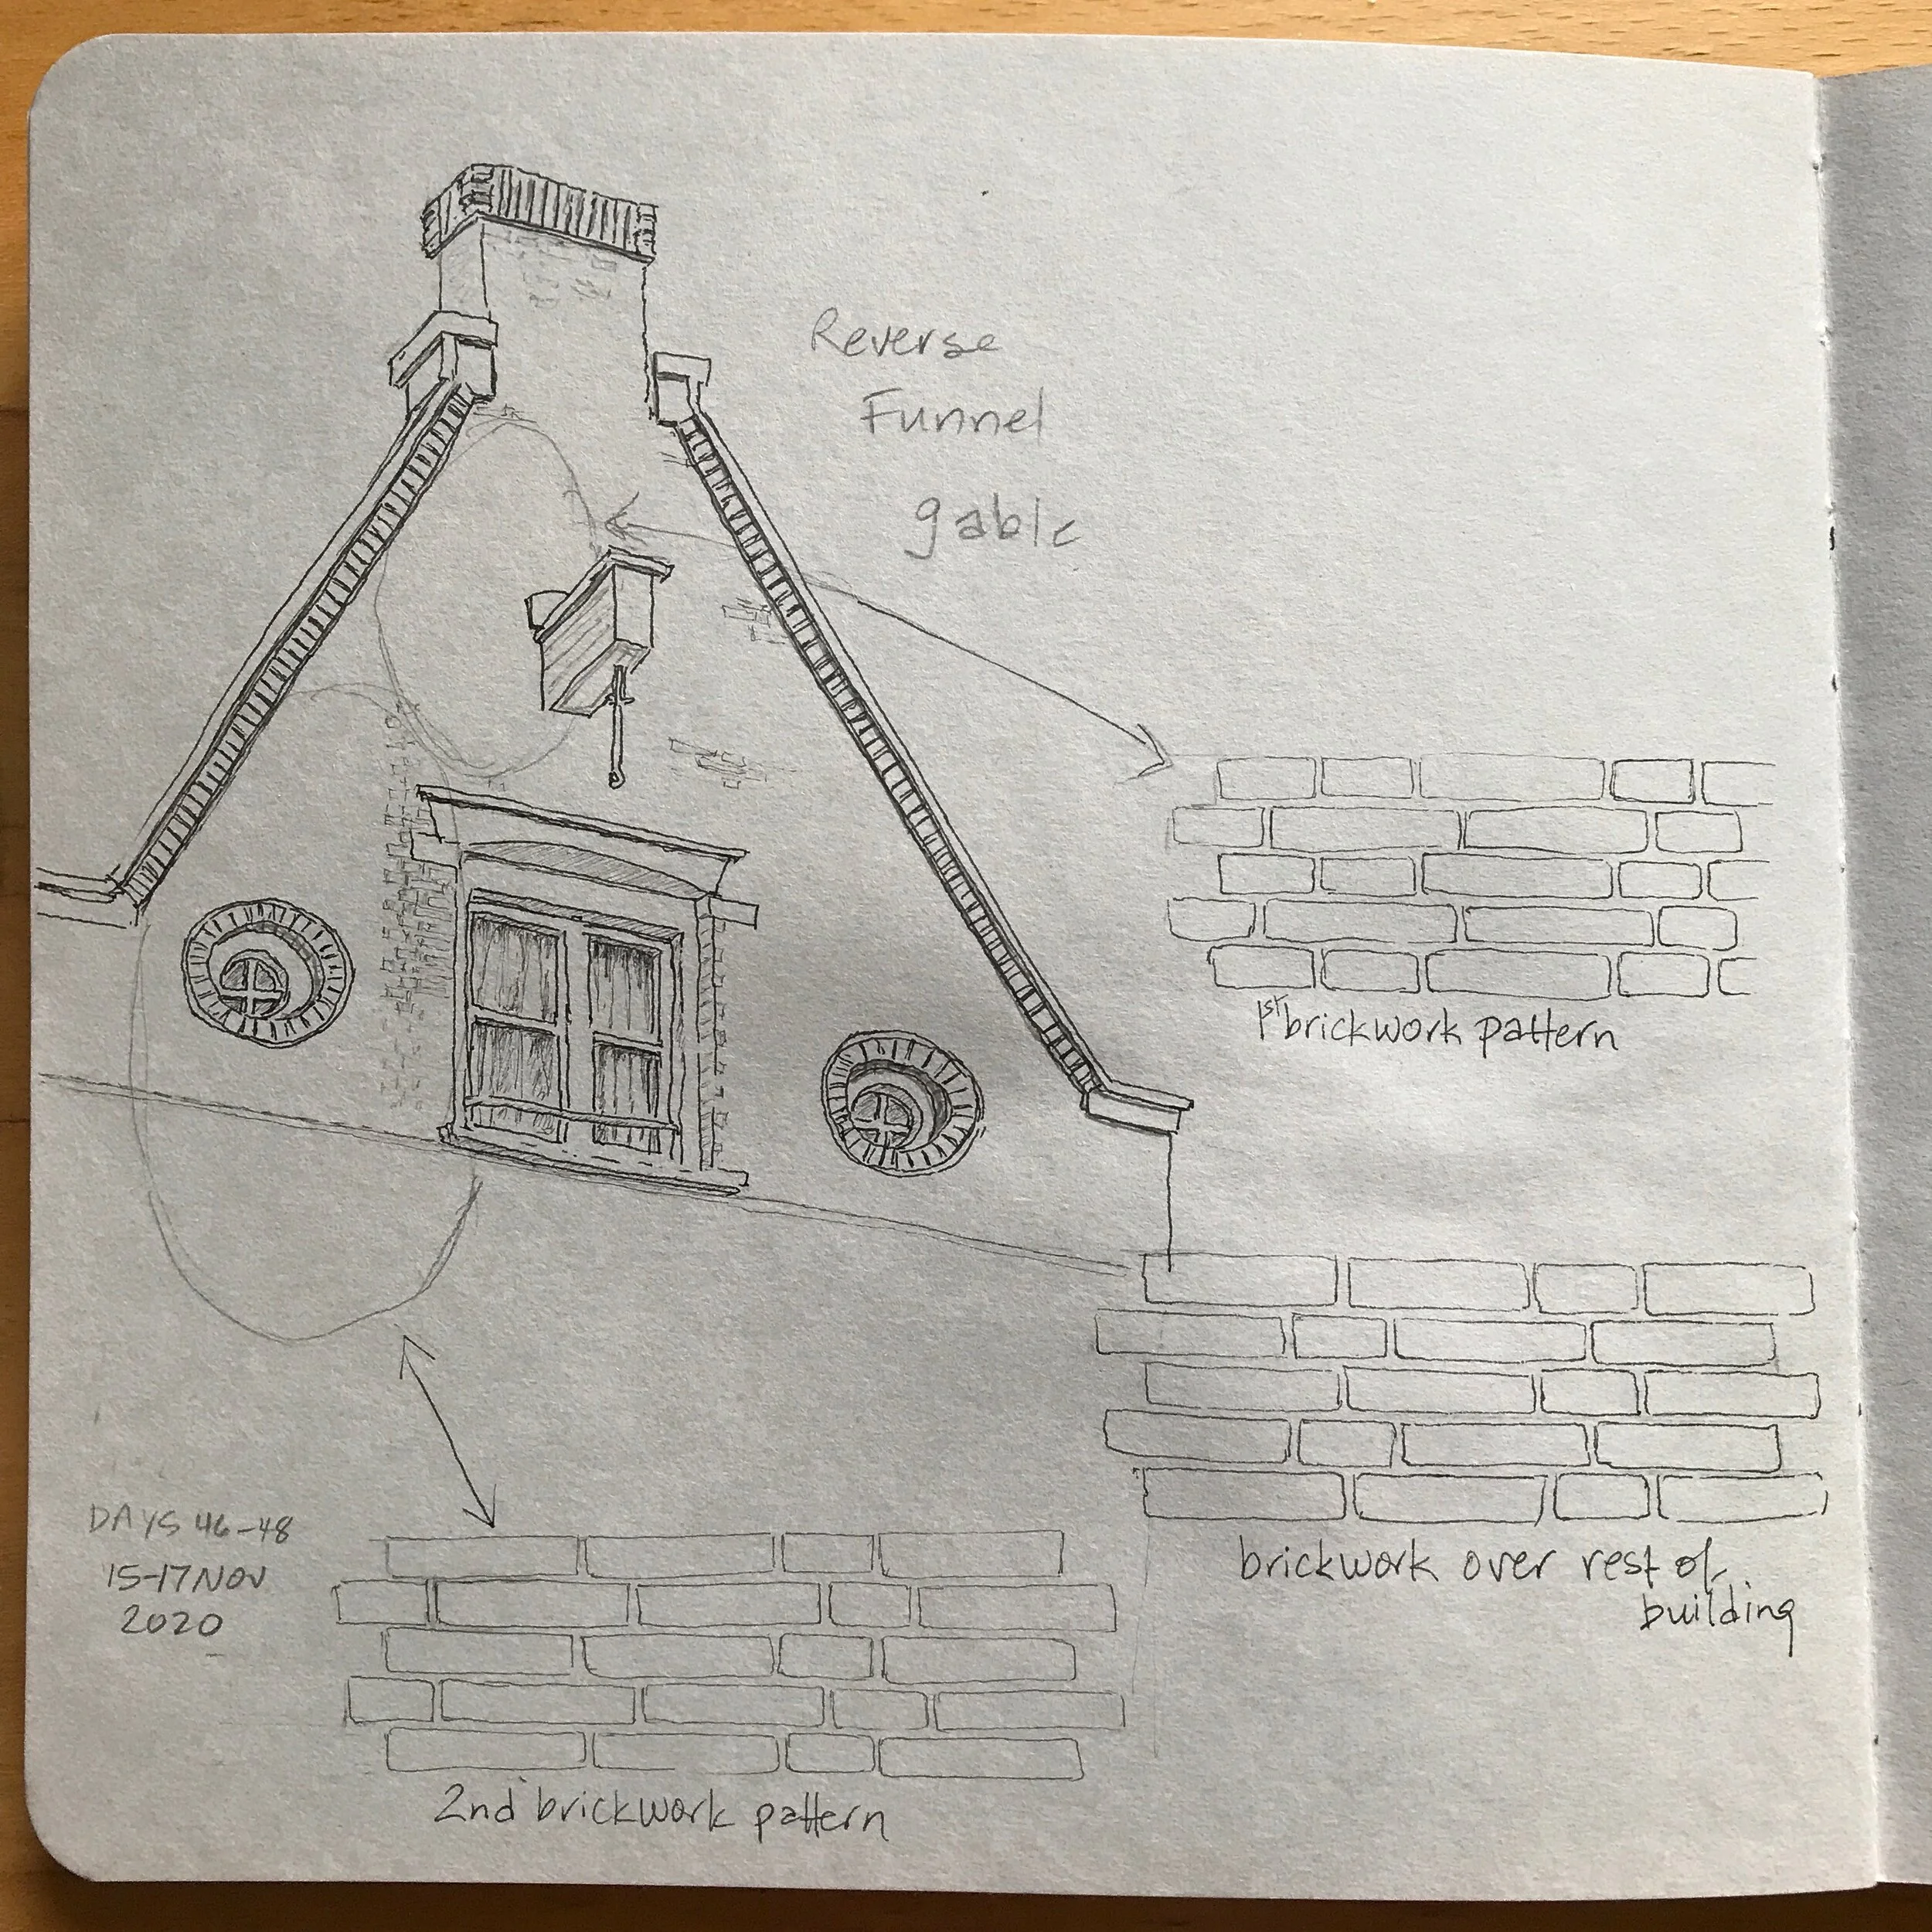 Reverse
Funnel
gable
1st brickwork pattern
brickwork over rest of
building
DAYS 46-48
15-17 NOV
2020
2nd brickwork pattern